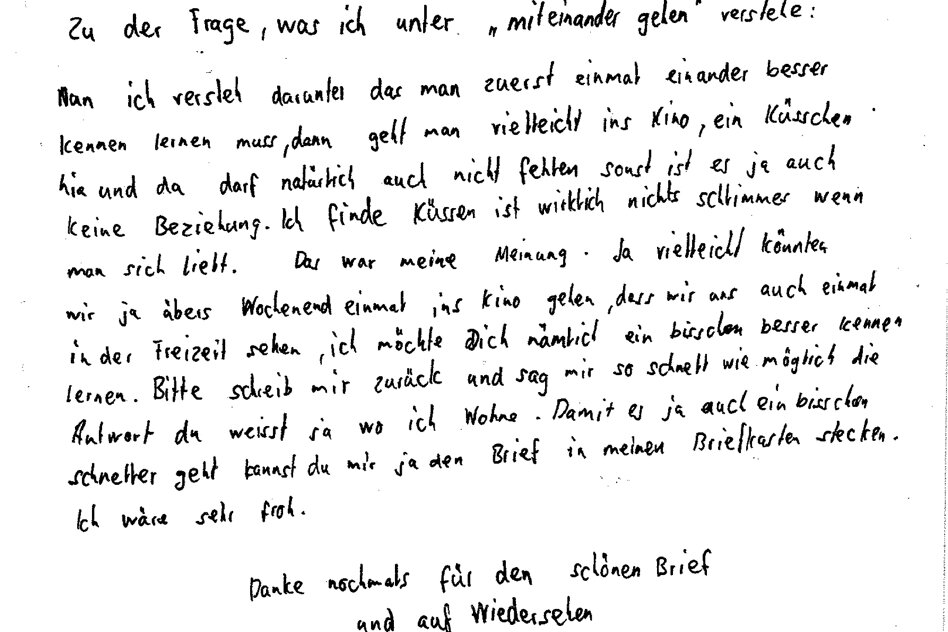 Zu der Frage, was ich unter „miteinander gehen" verstehe:
Nun ich versteh darunter das man zuerst einmal einander besser
kennen lernen muss, dann geht man vielleicht ins Kino, ein Küsschen
hie und da darf natürlich auch nicht fehlen sonst ist es ja auch
keine Beziehung. Ich finde Küssen ist wirklich nichts schlimmes wenn
man sich liebt. Das war meine Meinung. Ja vielleicht könnten
wir ja übers Wochenend einmal ins Kino gehen, dass wir uns auch einmal
in der Freizeit sehen, ich möchte Dich nämlich ein bisschen besser kennen
lernen. Bitte schreib mir zurück und sag mir so schnell wie möglich die
Antwort du weisst ja wo ich Wohne. Damit es ja auch ein bisschen
schneller geht kannst du mir ja den Brief in meinen Briefkasten stecken.
Ich wäre sehr froh.
Danke nochmals für den schönen Brief
und auf Wiedersehen